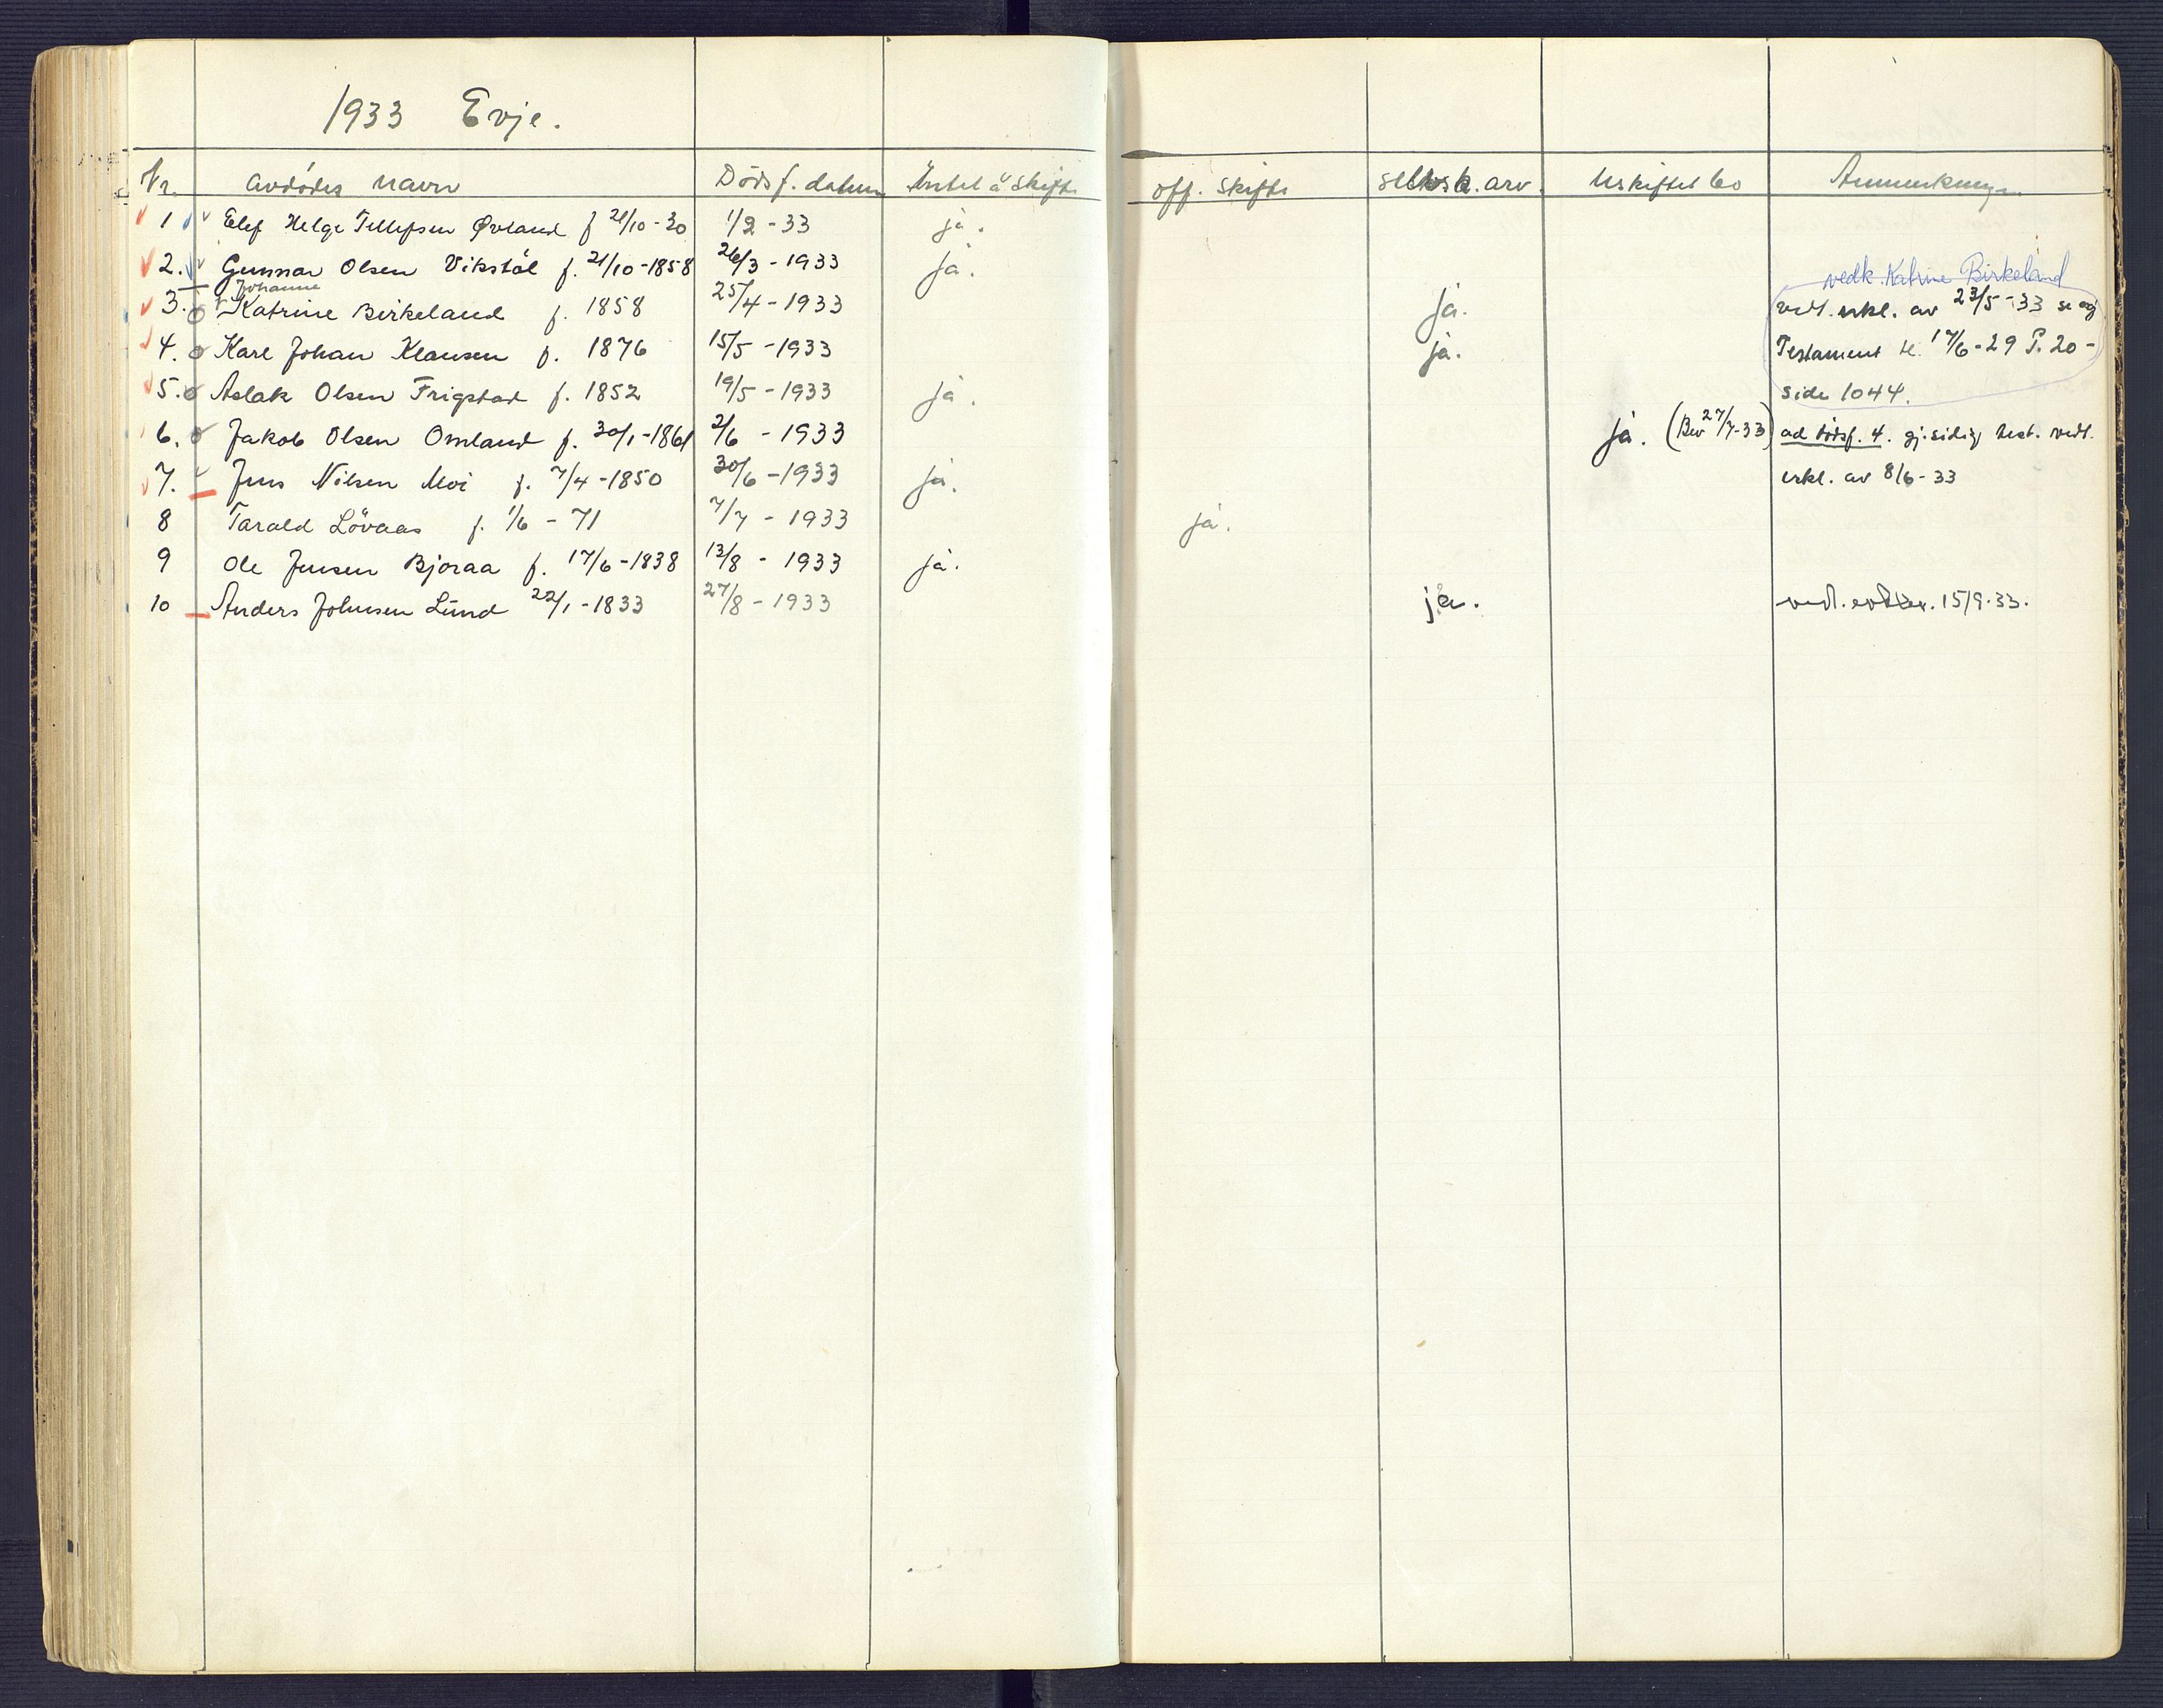 1933 Evje.
Nr. avdödes navn Dödsf. datum Intet å skifte off. skifte selvsk. arv. Uskiftet bo Anmerkninger
1 Elef Helge Tellefsen Øvland f 21/10-30 1/2 - 33 ja.
2. Gunnar Olsen Vikstöl f. 21/10-1858 26/3 - 1933 ja.
vedk. Katrine Birkeland
Johanne
3. Katrine Birkeland f. 1858 25/4 - 1933 ja. vedl. erkl. av 23/5-33 se og
4. Karl Johan Klausen f. 1876 15/5 - 1933 ja. Testament 17/6-29 P. 20-
5. Aslak Olsen Frigstad f. 1852 19/5 - 1933 ja. side 1044.
6. Jakob Olsen Omland f. 30/1-1861 2/6 - 1933 ja. (Bev 27/7-33) ad dödsf. 4. gj.sidig test. vedl.
7. Jens Nilsen Moi f. 7/4-1850 30/6-1933 ja. erkl. av 8/6-33
8 Tarald Lövaas f. 1/6 - 71 7/7 - 1933 ja.
9 Ole Jensen Bjoraa f. 17/6-1838 13/8 - 1933 ja.
10 Anders Johnsen Lund 22/1-1833 27/8 - 1933 ja. vedl. 15/9-33.